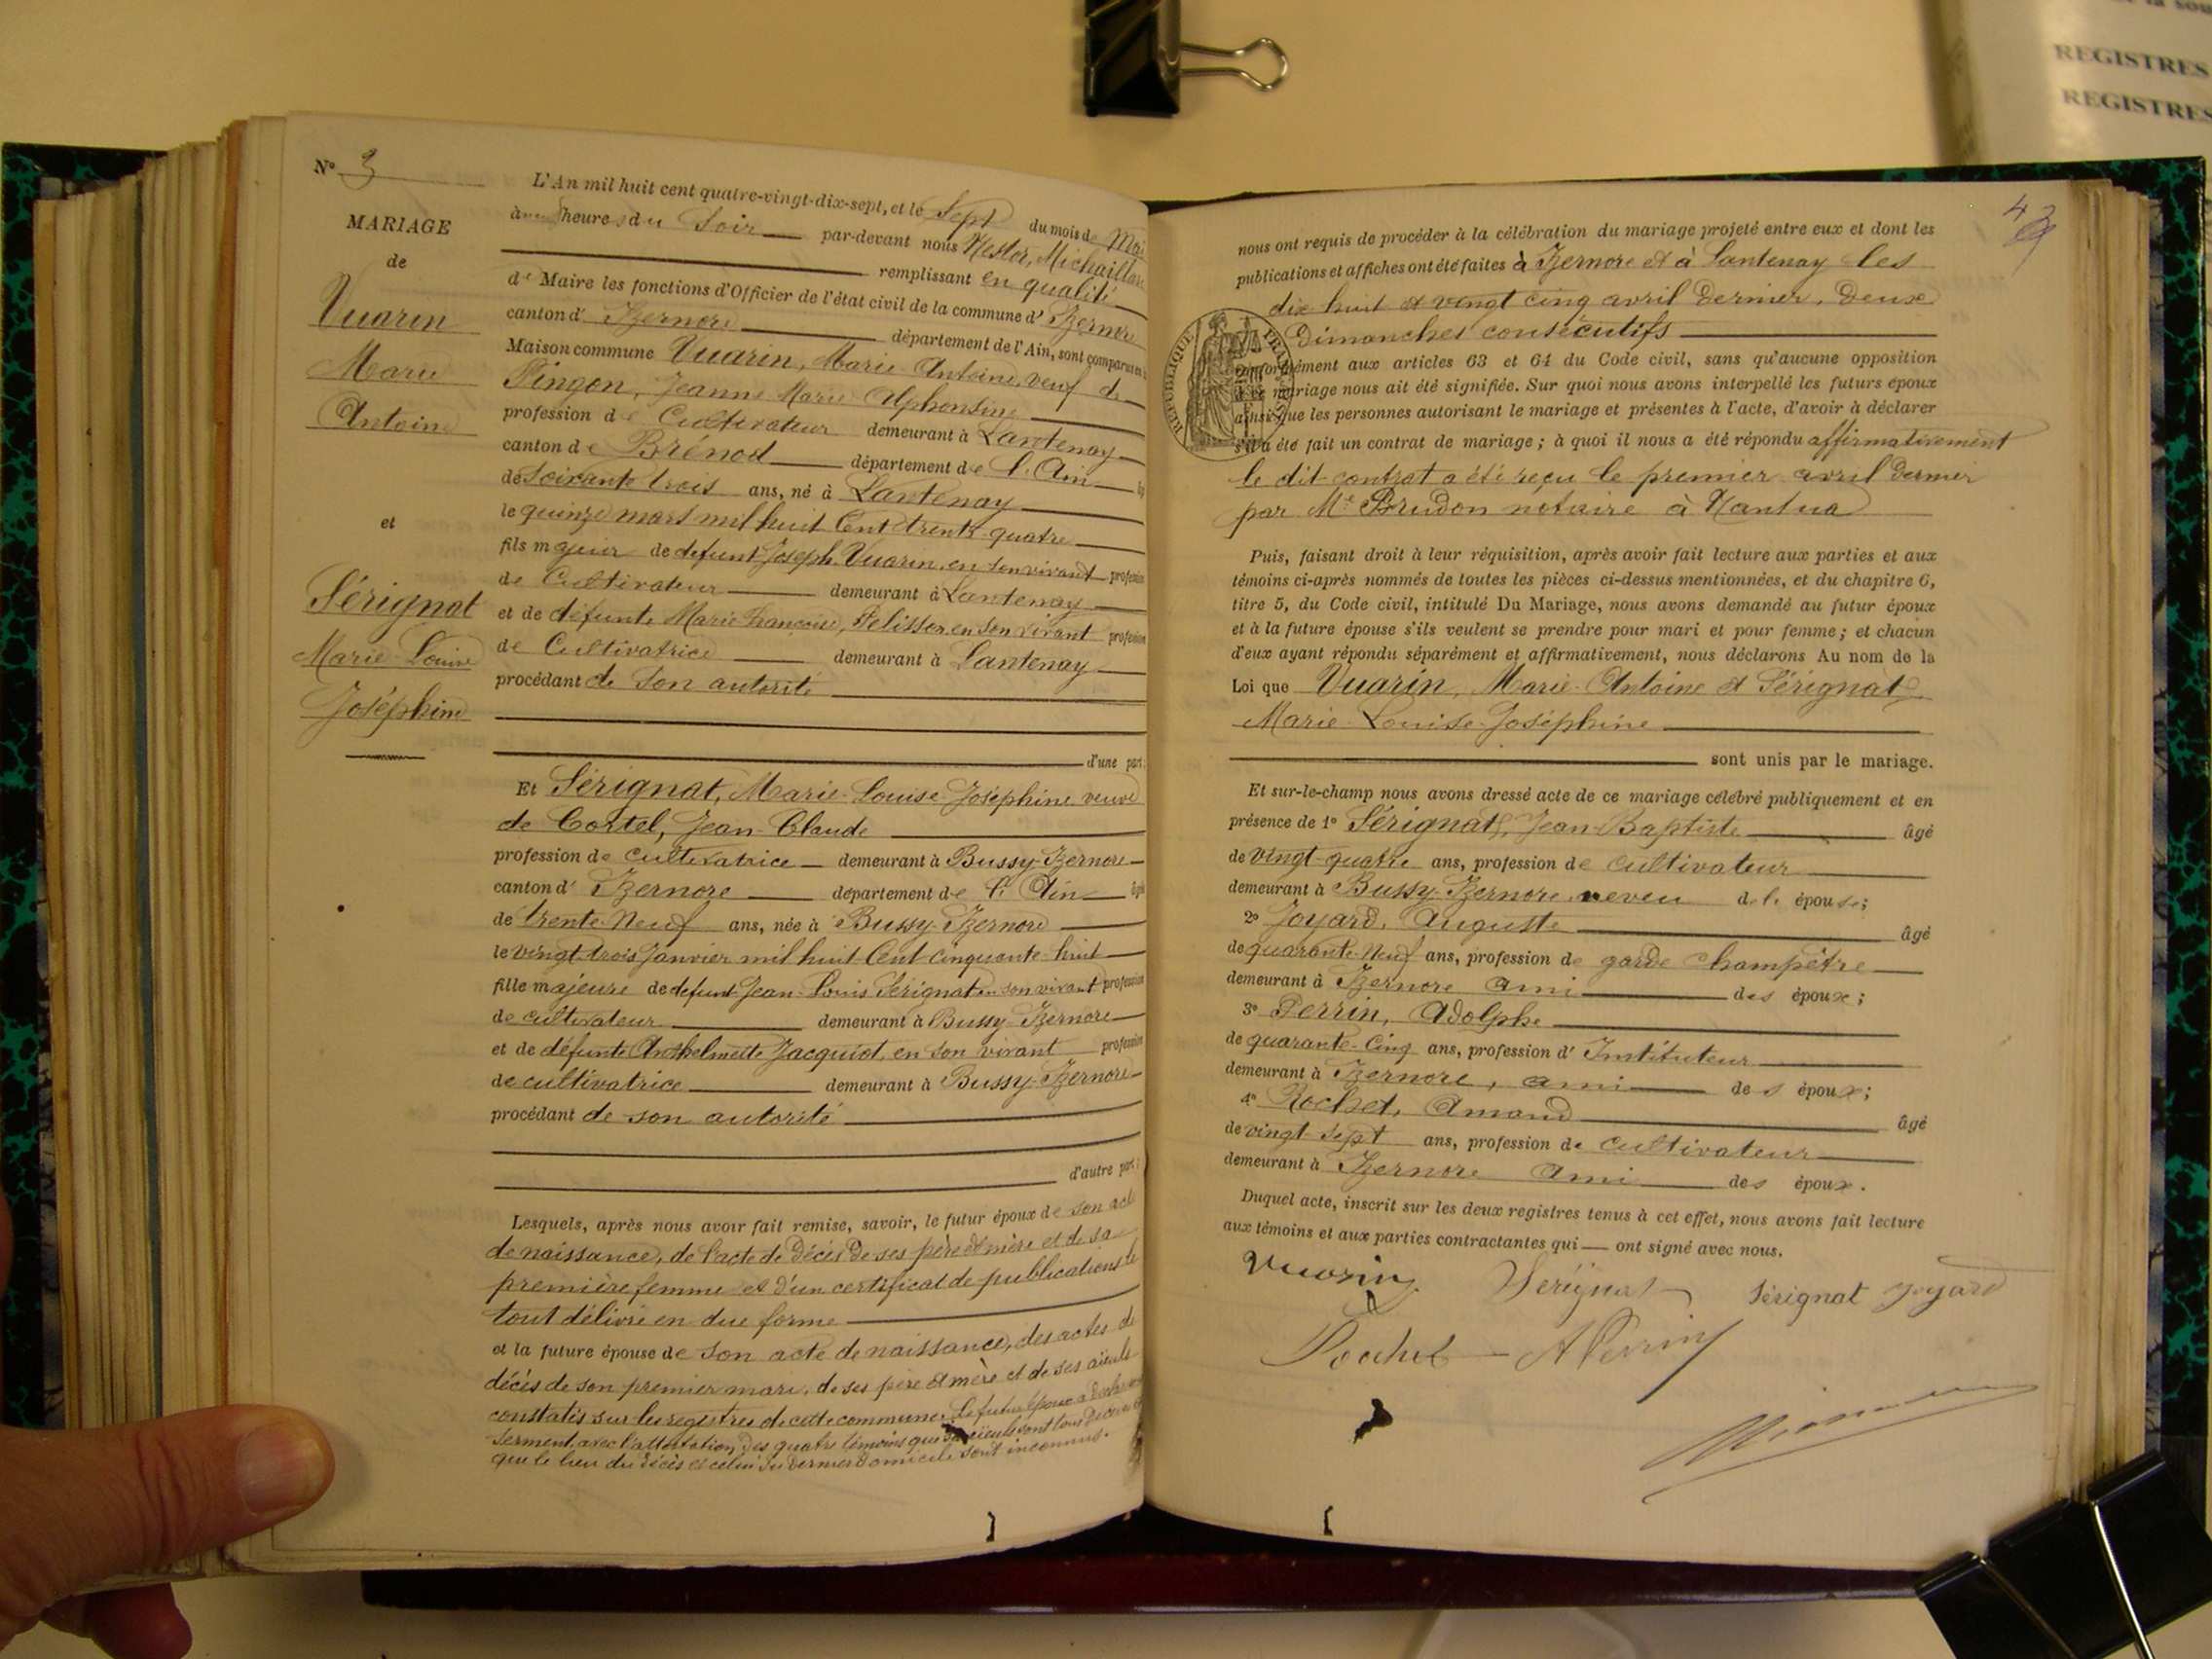 REGISTRES
REGISTRES
N° 3
MARIAGE
de
Vuarin
Marie
Antoine
et
Sérignat
Marie-Louise
Joséphine
L'An mil huit cent quatre-vingt-dix-sept, et le Sept du mois de Mai
à heures du Soir par-devant nous Nestor, Michaillard
remplissant en qualité
de Maire les fonctions d'Officier de l'état civil de la commune d' Izernore
canton d' Izernore département de l'Ain, sont comparus en
Maison commune Vuarin, Marie-Antoine, veuf de
Pingon, Jeanne Marie Alphonsine
profession de Cultivateur demeurant à Lantenay
canton de Brénod département de l'Ain
de Soixante trois ans, né à Lantenay
le quinze mars mil huit Cent trente-quatre
fils majeur de defunt Joseph Vuarin, en son vivant profession
de Cultivateur demeurant à Lantenay
et de défunte Marie Françoise, Pelisson, en son vivant profession
de Cultivatrice demeurant à Lantenay
procédant de Son autorité
d'une part;
Et Sérignat, Marie-Louise-Joséphine, veuve
de Cortel, Jean-Claude
profession de cultivatrice demeurant à Bussy-Izernore
canton d' Izernore département de l'Ain âgée
de trente-Neuf ans, née à Bussy-Izernore
le vingt-trois Janvier mil huit-Cent-cinquante-huit
fille majeure de defunt Jean-Louis Sérignat en son vivant profession
de cultivateur demeurant à Bussy-Izernore
et de défunte Anthelmette Jacquiot, en son vivant profession
de cultivatrice demeurant à Bussy-Izernore
procédant de son autorité
d'autre part;
Lesquels, après nous avoir fait remise, savoir, le futur époux de son acte
de naissance, de l'acte de Décès de ses père et mère et de sa
première femme et d'un certificat de publications le
tout délivré en due forme
et la future épouse de Son acte de naissance, des actes de
décès de son premier mari, de ses père et mère et de ses aïeuls
constatés sur les registres de cette commune. Le futur époux a déclaré
serment avec l'attestation des quatre témoins que ses aïeuls sont tous décédés et
que le lieu du décès et celui du dernier domicile sont inconnus.
nous ont requis de procéder à la célébration du mariage projeté entre eux et dont les
publications et affiches ont été faites à Izernore et à Lantenay les
dix huit et vingt cinq avril dernier, Deux
Dimanches consécutifs
RÉPUBLIQUE FRANÇAISE
conformément aux articles 63 et 64 du Code civil, sans qu'aucune opposition
à ce mariage nous ait été signifiée. Sur quoi nous avons interpellé les futurs époux
ainsi que les personnes autorisant le mariage et présentes à l'acte, d'avoir à déclarer
s'il a été fait un contrat de mariage; à quoi il nous a été répondu affirmativement
le dit contrat a été reçu le premier avril dernier
par Me Brudon notaire à Nantua
Puis, faisant droit à leur réquisition, après avoir fait lecture aux parties et aux
témoins ci-après nommés de toutes les pièces ci-dessus mentionnées, et du chapitre 6,
titre 5, du Code civil, intitulé Du Mariage, nous avons demandé au futur époux
et à la future épouse s'ils veulent se prendre pour mari et pour femme; et chacun
d'eux ayant répondu séparément et affirmativement, nous déclarons Au nom de la
Loi que Vuarin, Marie-Antoine et Sérignat
Marie-Louise-Joséphine
sont unis par le mariage.
Et sur-le-champ nous avons dressé acte de ce mariage célébré publiquement et en
présence de 1° Sérignat, Jean-Baptiste âgé
de vingt-quatre ans, profession de cultivateur
demeurant à Bussy-Izernore, neveu de l' épouse;
2° Joyard, Auguste âgé
de quarante-Neuf ans, profession de garde champêtre
demeurant à Izernore ami des époux;
3° Perrin, Adolphe
de quarante-Cinq ans, profession d' Instituteur
demeurant à Izernore, ami des époux;
4° Rochet, Amand âgé
de vingt-sept ans, profession de cultivateur
demeurant à Izernore Ami des époux.
Duquel acte, inscrit sur les deux registres tenus à cet effet, nous avons fait lecture
aux témoins et aux parties contractantes qui ont signé avec nous.
Vuarin Sérignat Sérignat Joyard
Rochet A Perrin